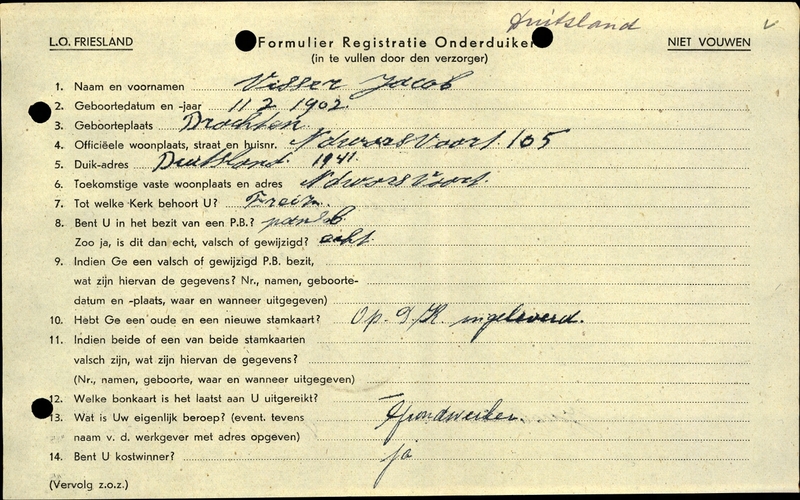 Duitsland
L.O. FRIESLAND Formulier Registratie Onderduiker NIET VOUWEN
(in te vullen door den verzorger)
1. Naam en voornamen Visser Jacob
2. Geboortedatum en -jaar 11 2 1902.
3. Geboorteplaats Drachten.
4. Officiëele woonplaats, straat en huisnr. 105
5. Duik-adres Duitsland. 1941.
6. Toekomstige vaste woonplaats en adres
7. Tot welke Kerk behoort U?
8. Bent U in het bezit van een P.B.?
Zoo ja, is dit dan echt, valsch of gewijzigd? echt.
9. Indien Ge een valsch of gewijzigd P.B. bezit,
wat zijn hiervan de gegevens? Nr., namen, geboorte-
datum en -plaats, waar en wanneer uitgegeven)
10. Hebt Ge een oude en een nieuwe stamkaart? Op. D/K ingeleverd.
11. Indien beide of een van beide stamkaarten
valsch zijn, wat zijn hiervan de gegevens?
(Nr., namen, geboorte, waar en wanneer uitgegeven)
12. Welke bonkaart is het laatst aan U uitgereikt?
13. Wat is Uw eigenlijk beroep? (event. tevens Grondwerker
naam v. d. werkgever met adres opgeven)
14. Bent U kostwinner? ja
(Vervolg z.o.z.)